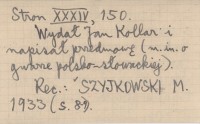 Stron XXXIV, 150.
Wydał Jan Kollar i
napisał przedmowę (m.in. o
gwarze polsko-słowackiej).
Rec.: SZYJKOWSKI M.
1933 (s. 89).